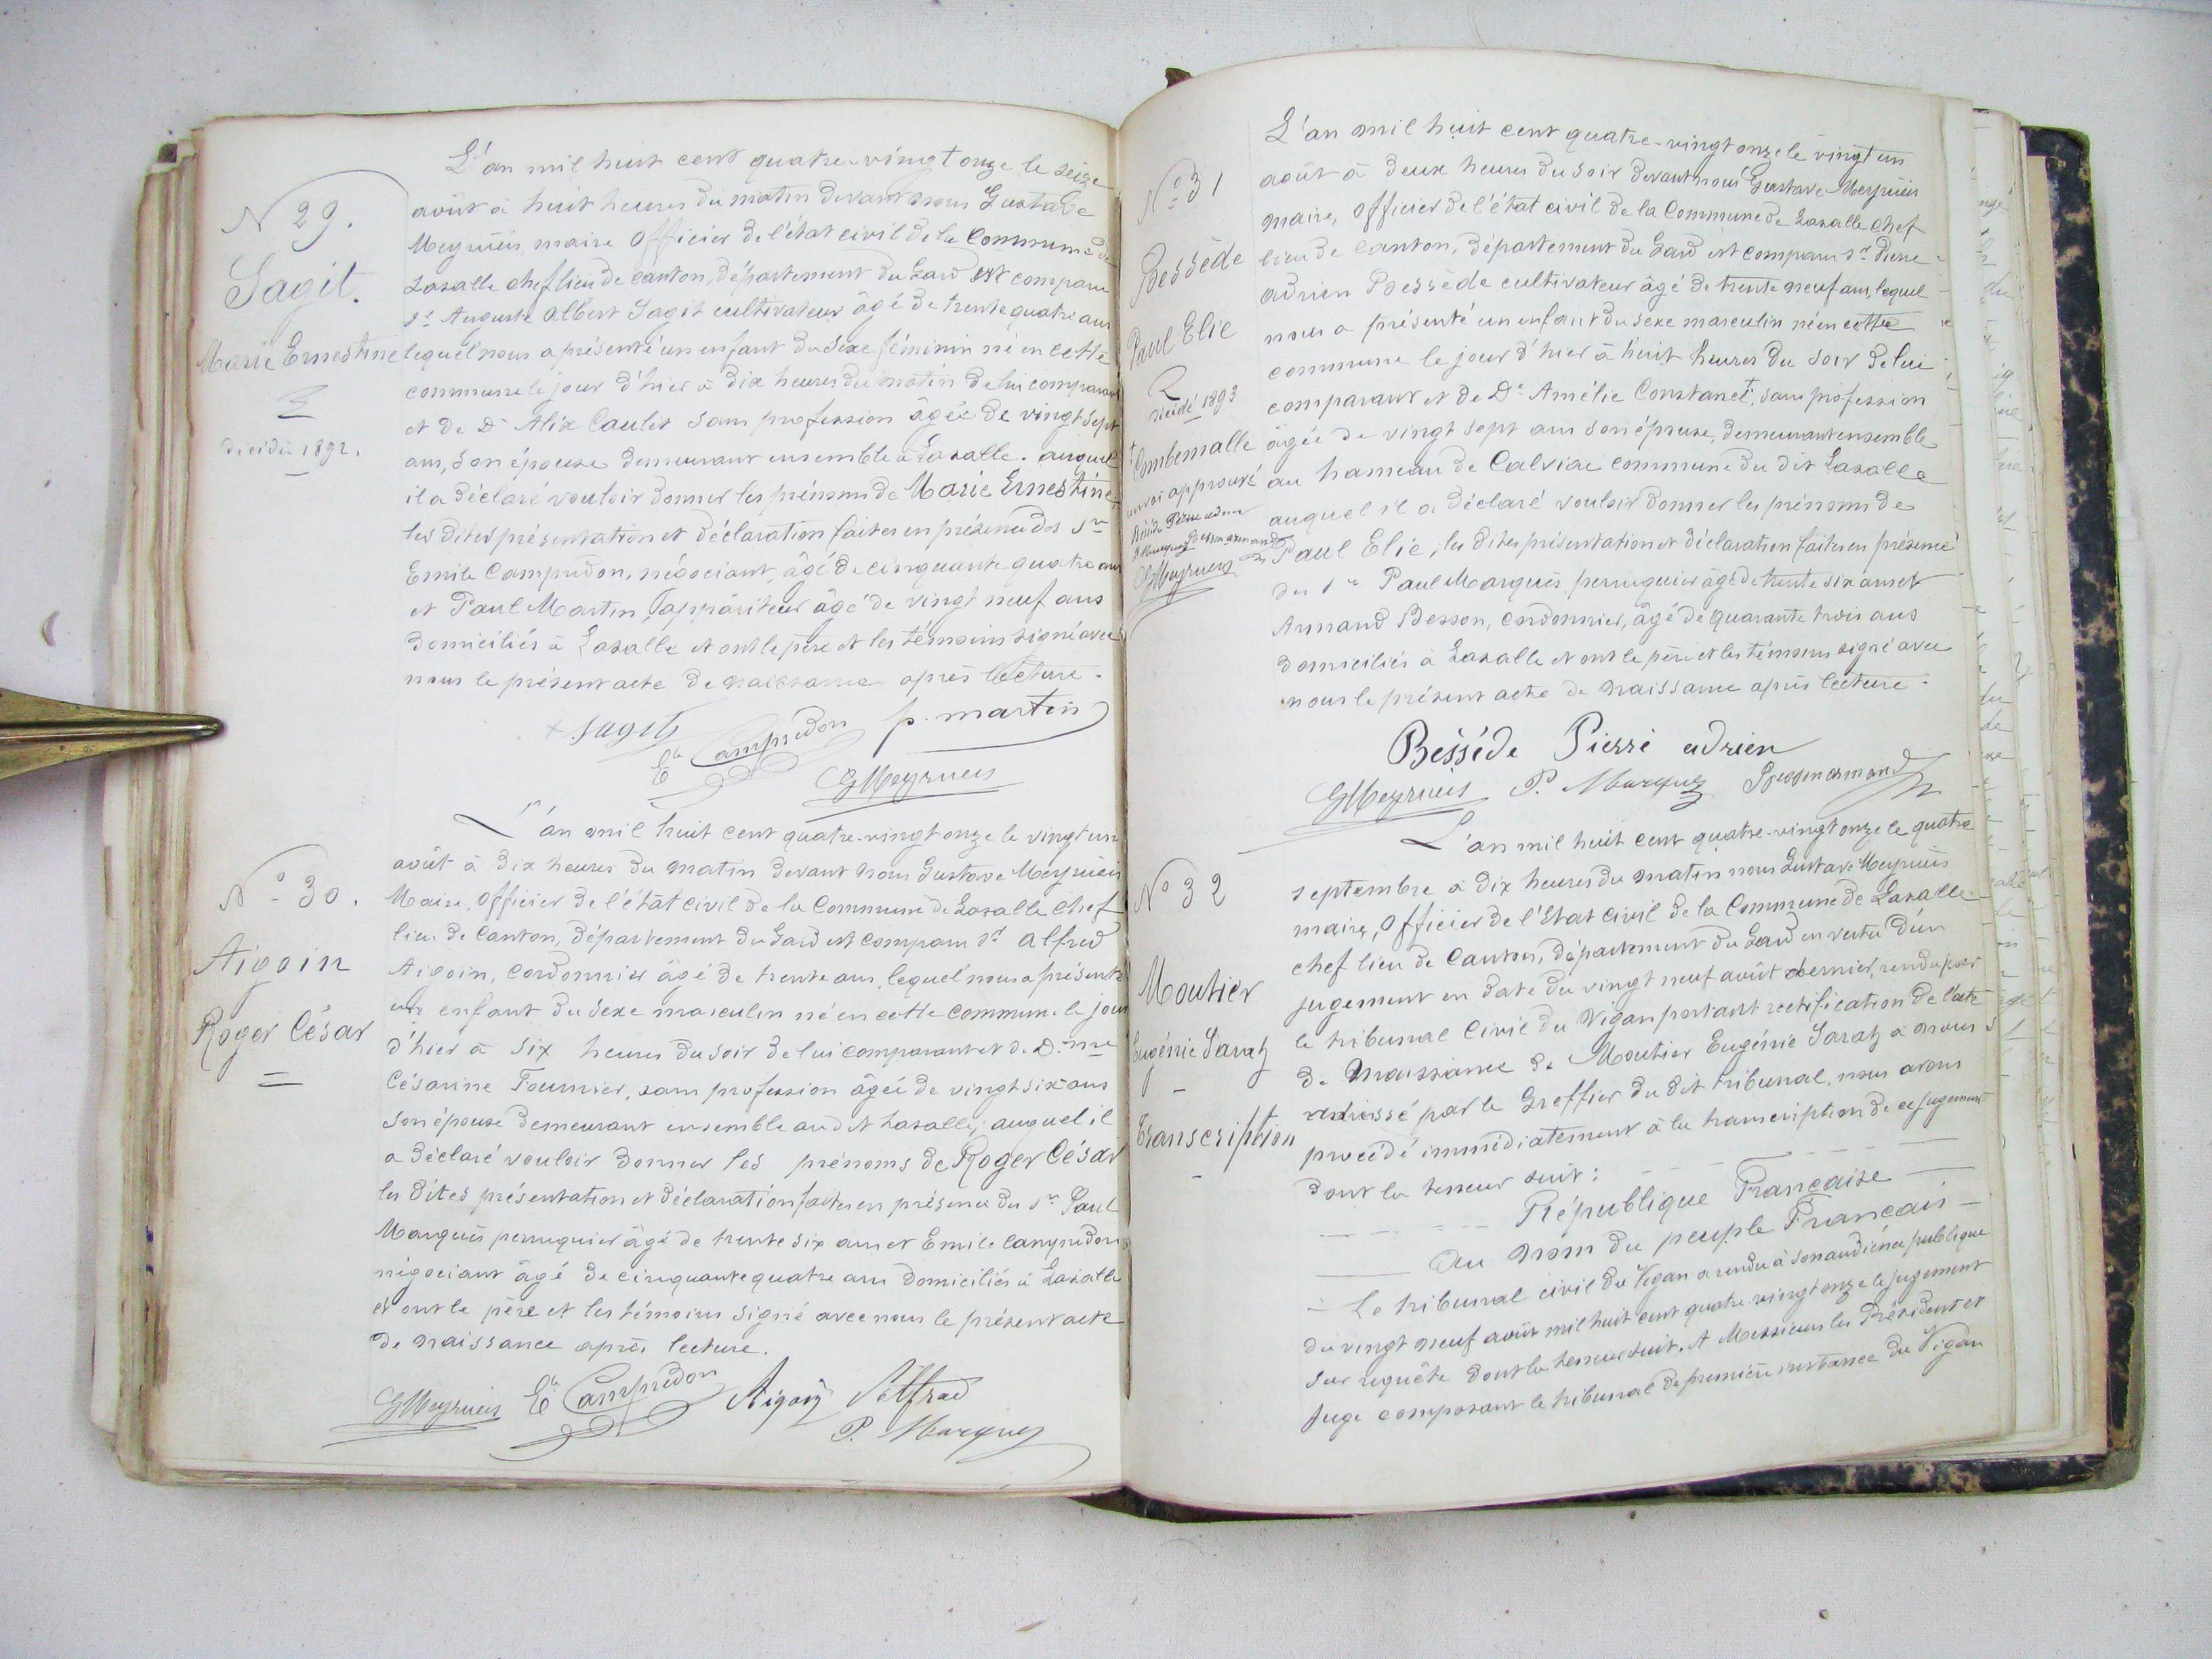 N 29.
Sagit.
Marie Ernestine
décédée 1892.
L'an mil huit cent quatre-vingt onze le seize
août à huit heures du matin devant nous Gustave
Meyrueis, maire Officier de l'état civil de la Commune de
Lasalle chef lieu de canton, département du Gard est comparu
Sr Auguste Albert Sagit cultivateur âgé de trente quatre ans
lequel nous a présenté un enfant du sexe féminin né en cette
commune le jour d'hier à dix heures du matin de lui comparant
et de De Alix Caulet sans profession âgée de vingt sept
ans, son épouse demeurant ensemble à Lasalle. auquel
il a déclaré vouloir donner les prénoms de Marie Ernestine
les dites présentation et déclaration faites en présence des Srs
Emile Campredon, négociant, âgé de cinquante quatre ans
et Paul Martin, appariteur âgé de vingt neuf ans
domiciliés à Lasalle et ont le père et les témoins signé avec
nous le présent acte de naissance après lecture.
Sagit
Ele Campredon p. martin
GMeyrueis
No 30.
Aigoin
Roger César
L'an mil huit cent quatre-vingt onze le vingt un
août à dix heures du matin devant nous Gustave Meyrueis
Maire, Officier de l'état civil de la Commune de Lasalle chef
lieu de Canton, département du Gard est comparu Sr Alfred
Aigoin, Cordonnier âgé de trente ans, lequel nous a présenté
un enfant du sexe masculin né en cette commune le jour
d'hier à six heures du soir de lui comparant et de Dme
Césarine Fournier, sans profession âgée de vingt six ans
son épouse demeurant ensemble audit Lasalle, auquel il
a déclaré vouloir donner les prénoms de Roger César
les dites présentation et déclaration faites en présence des Srs Paul
Marquès perruquier âgé de trente six ans et Emile Campredon
négociant âgé de cinquante quatre ans domiciliés à Lasalle
et ont le père et les témoins signé avec nous le présent acte
de naissance après lecture.
GMeyrueis Ele Campredon Aigoin Alfred
P. Marques
No 31
Bessède
Paul Elie
décédé 1893
Combemalle
renvoi approuvé
Bésséde Pierre adrien
P Marques Besson armand
GMeyrueis
L'an mil huit cent quatre-vingt onze le vingt un
août à deux heures du soir devant nous Gustave Meyrueis
maire, Officier de l'état civil de la Commune de Lasalle chef
lieu de Canton, département du Gard est comparu Sr Pierre
Adrien Bessède cultivateur âgé de trente neuf ans, lequel
nous a présenté un enfant du sexe masculin né en cette
commune le jour d'hier à huit heures du soir de lui
comparant et de De Amélie Constance, sans profession
âgée de vingt sept ans son épouse, demeurant ensemble
au hameau de Calviac commune du dit Lasalle
auquel il a déclaré vouloir donner les prénoms de
Paul Elie, les dites présentation et déclaration faites en présence
des Srs Paul Marquès, perruquier âgé de trente six ans et
Armand Besson, cordonnier, âgé de quarante trois ans
domiciliés à Lasalle et ont le père et les témoins signé avec
nous le présent acte de naissance après lecture.
Bésséde Pierre adrien
GMeyrueis P. Marques Besson armand
No 32
Moutier
Eugénie Sarah
Transcription
L'an mil huit cent quatre-vingt onze le quatre
septembre à dix heures du matin nous Gustave Meyrueis
maire, Officier de l'Etat civil de la Commune de Lasalle
chef lieu de Canton, département du Gard en vertu d'un
jugement en date du vingt neuf août dernier, rendu par
le tribunal civil du Vigan portant rectification de l'acte
de Naissance de Moutier Eugénie Sarah à nous
adressé par le Greffier du dit tribunal, nous avons
procédé immédiatement à la transcription de ce jugement
dont la teneur suit:
République Française
Au Nom du peuple Français
Le tribunal civil du Vigan a rendu à son audience publique
du vingt neuf août mil huit cent quatre vingt onze le jugement
sur requête dont la teneur suit. A Messieurs les Président et
Juge composant le tribunal de première instance du Vigan